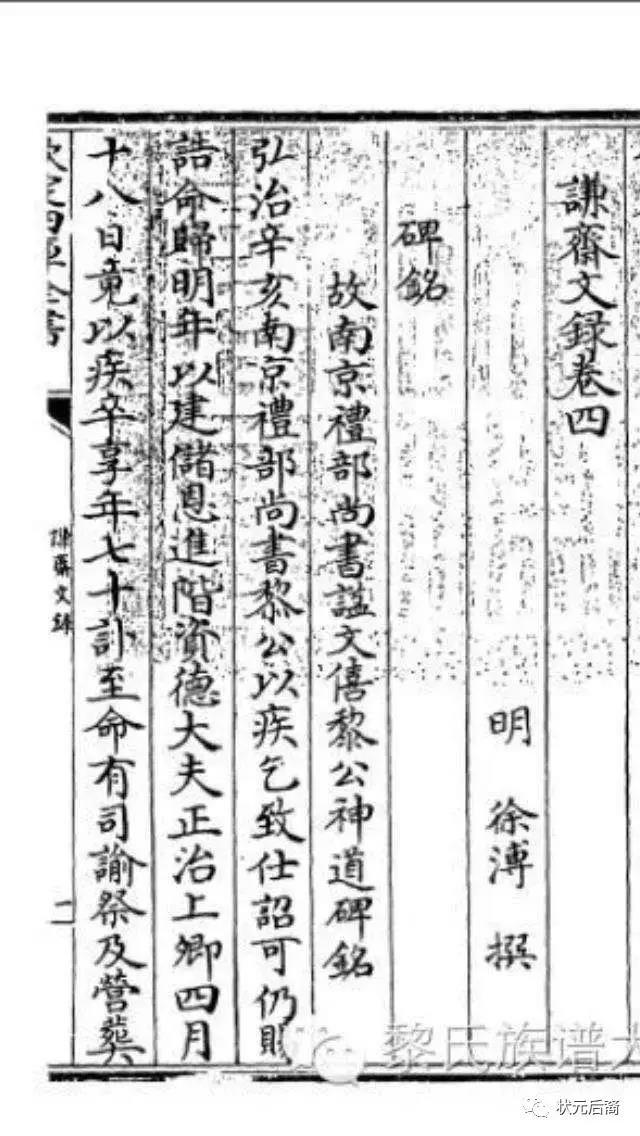 謙齋文録卷四
明 徐溥 撰
碑銘
故南京禮部尚書諡文僖黎公神道碑銘
弘治辛亥南京禮部尚書黎公以疾乞致仕詔可仍賜
誥命歸明年以建儲恩進階資德大夫正治上卿四月
十八日竟以疾卒享年七十訃至命有司諭祭及營葬
欽定四庫全書
謙齋文録
一
黎氏族谱大
状元后裔